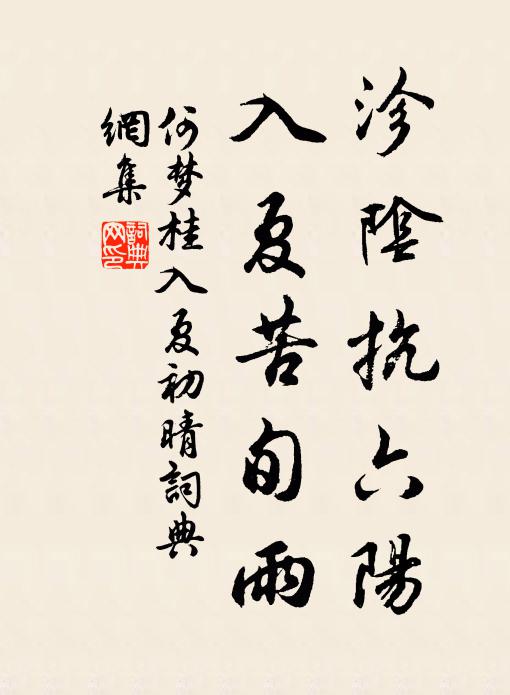 沴陰抗六陽
入夏苦旬雨
何梦桂入夏初晴詞典
網集
詞典网印